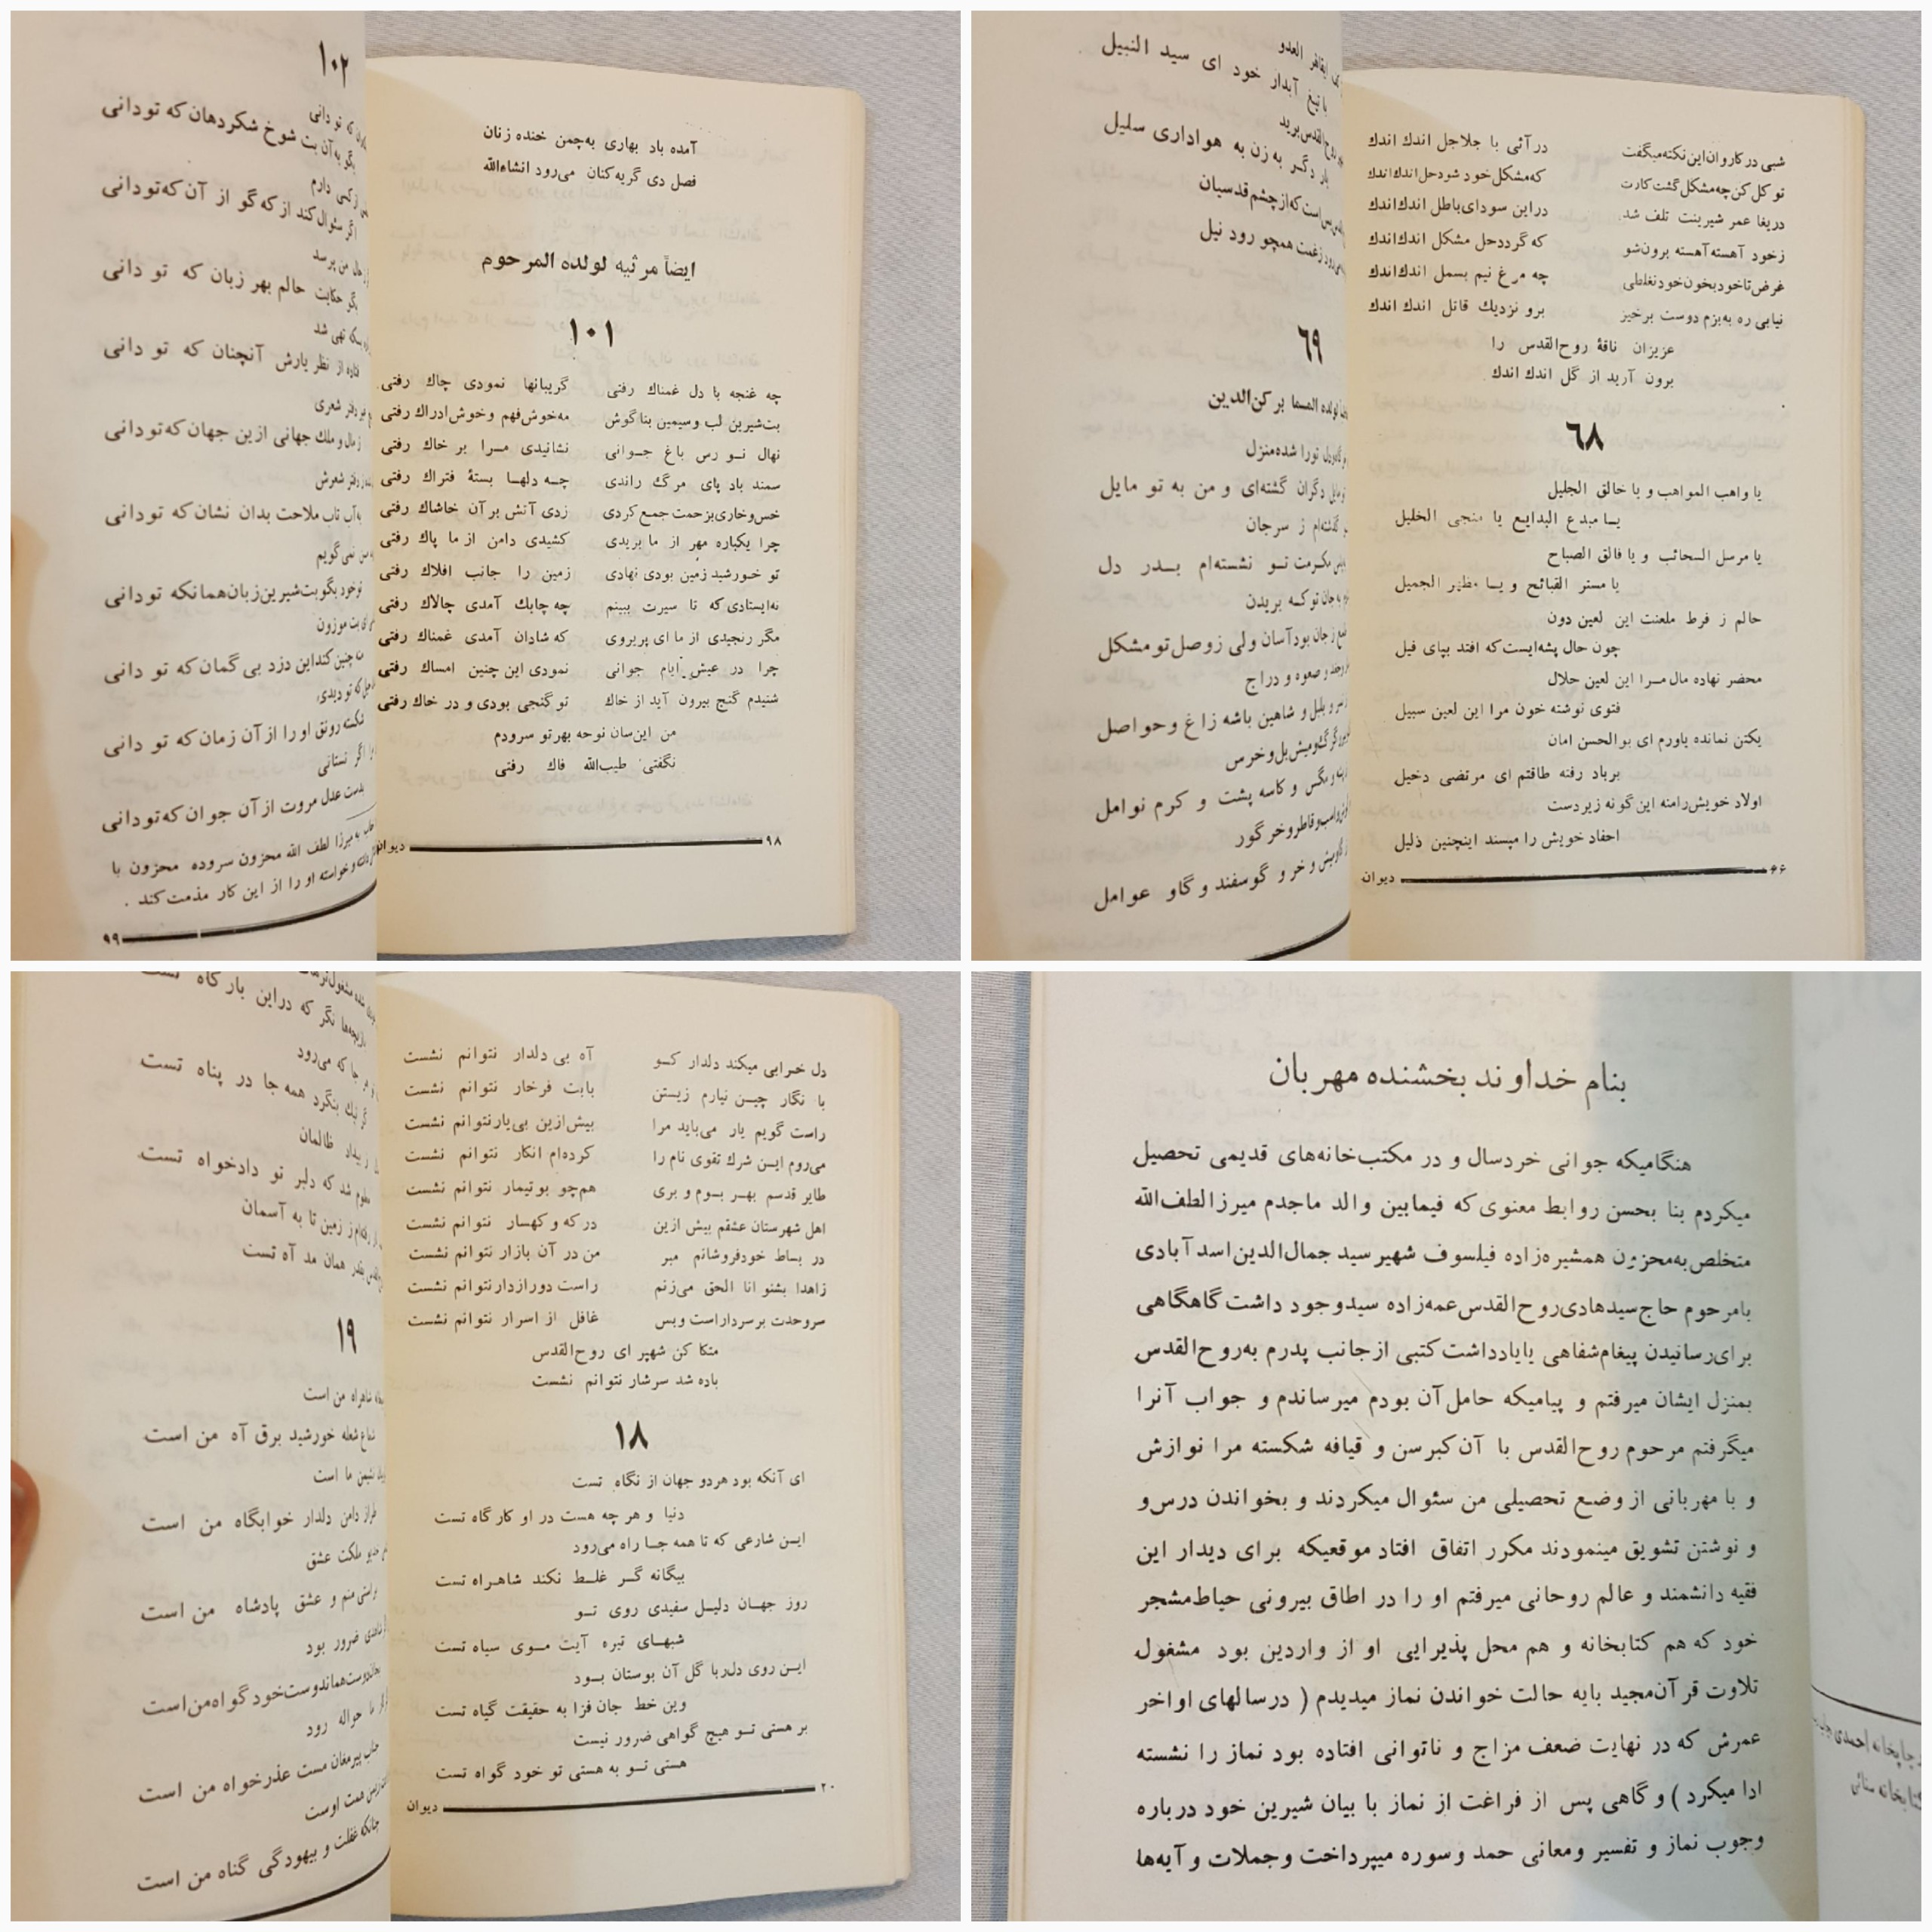 آمده باد بهاری به‌چمن خنده زنان
فصل دی گریه‌کنان می‌رود انشاءالله
ایضاً مرثیه لولده المرحوم
۱۰۱
چه غنچه با دل غمناك رفتی گریبانها نمودی چاك رفتی
بت‌شیرین لب وسیمین بناگوش مه‌خوش‌فهم وخوش‌ادراك رفتی
نهال نو رس باغ جوانی نشانیدی مرا بر خاك رفتی
سمند باد پای مرگ راندی چه دلها بستهٔ فتراك رفتی
خس‌وخاری‌بزحمت جمع‌کردی زدی آتش برآن خاشاك رفتی
چرا یکباره مهر از ما بریدی کشیدی دامن از ما پاك رفتی
تو خورشید زمین بودی نهادی زمین را جانب افلاك رفتی
نه‌ایستادی‌که تا سیرت ببینم چه چابك آمدی چالاك رفتی
مگر رنجیدی از ما ای پریروی که شادان آمدی غمناك رفتی
چرا در عیش ایام جوانی نمودی این چنین امساك رفتی
شنیدم گنج بیرون آید از خاك تو گنجی بودی و در خاك رفتی
من این‌سان نوحه بهرتو سرودم
نگفتی طیب‌الله فاك رفتی
۹۸ دیوان
۱۰۲
که تو دانی
بگو به‌آن بت شوخ شکردهان که تودانی
دارم
اگر سئوال‌کند از که گو از آن که‌تودانی
حال من پرسد
بگو حکایت حالم بهر زبان که تو دانی
تهی شد
فتاده از نظر یارش آنچنان که تو دانی
دفتر شعری
ز مال و ملك جهانی ازین جهان که‌تودانی
دفتر شعرش
به‌آب تاب ملاحت بدان نشان‌که تودانی
من نمی‌گویم
توخود بگو بت‌شیرین‌زبان‌همانکه تودانی
بت موزون
چنین‌کنداین دزد بی گمان‌که تو دانی
که تو دیدی
شکسته رونق اورا ازآن زمان‌که تو دانی
اگر نستانی
بدست عدل مروت ازآن جوان که‌تودانی
به میرزا لطف الله محزون سروده محزون با
وخواسته او را از این کار مذمت‌کند .
۹۹
شبی درکاروان‌این‌نکته‌میگفت درآئی با جلاجل اندك اندك
توکل‌کن‌چه‌مشکل‌گشت‌کارت که‌مشکل‌خود شودحل‌اندك‌اندك
دریغا عمر شیرینت تلف شد دراین سودای‌باطل اندك‌اندك
زخود آهسته‌آهسته برون‌شو که گرددحل مشکل اندك‌اندك
غرض‌تاخودبخون‌خودنغلطی چه مرغ نیم بسمل اندك‌اندك
نیابی ره به‌بزم دوست برخیز برو نزدیك قاتل اندك اندك
عزیزان نافهٔ روح‌القدس را
برون آرید از گل اندك اندك
٦٨
یا واهب المواهب و یا خالق الجلیل
یا مبدع البدایع یا منجی الخلیل
یا مرسل السحائب و یا فالق الصباح
یا مستر القبائح و یا مظهر الجمیل
حالم ز فرط ملعنت این لعین دون
چون حال پشه‌ایست‌که افتد بپای فیل
محضر نهاده مال مرا این لعین حلال
فتوی نوشته خون مرا این لعین سبیل
یکتن نمانده یاورم ای بوالحسن امان
برباد رفته طاقتم ای مرتضی دخیل
اولاد خویش‌رامنه این‌گونه زیردست
احفاد خویش را مپسند اینچنین ذلیل
۶۶ دیوان
العدو
با تیغ آبدار خود ای سید النبیل
روح‌القدس‌برید
بار دگر به‌زن به هواداری سلیل
است‌که‌ازچشم‌قدسیان
زغمت همچو رود نیل
٦٩
لولده المسما برکن‌الدین
تورا شده‌منزل
دگران گشته‌ای و من به تو مایل
گذشته‌ام ز سرجان
تو نشسته‌ام بدر دل
به‌جان توکه بریدن
ز جان بودآسان ولی زوصل‌تومشکل
و صعوه و دراج
و بلبل و شاهین باشه زاغ وحواصل
و مگس و کاسه پشت و کرم نوامل
وقاطروخر گور
و خر و گوسفند و گاو عوامل
دل خرابی میکند دلدار کو آه بی دلدار نتوانم نشست
با نگار چین نیارم زیستن بابت فرخار نتوانم نشست
راست گویم یار می‌باید مرا بیش‌ازین بی‌یارنتوانم نشست
می‌روم این شرك تقوی نام را کرده‌ام انکار نتوانم نشست
طایر قدسم بهر بوم و بری هم‌چو بوتیمار نتوانم نشست
اهل شهرستان عشقم بیش ازین درکه و کهسار نتوانم نشست
در بساط خودفروشانم مبر من در آن بازار نتوانم نشست
زاهدا بشنو انا الحق می‌زنم راست دورازدارنتوانم نشست
سروحدت برسرداراست وبس غافل از اسرار نتوانم نشست
متکا کن شهپر ای روح‌القدس
باده شد سرشار نتوانم نشست
۱۸
ای آنکه بود هردو جهان از نگاه تست
دنیا و هر چه هست در او کارگاه تست
این شارعی که تا همه جا راه می‌رود
بیگانه گر غلط نکند شاهراه تست
روز جهان دلیل سفیدی روی تو
شبهای تیره آیت موی سیاه تست
این روی دلربا گل آن بوستان بود
وین خط جان فزا به حقیقت گیاه تست
بر هستی تو هیچ گواهی ضرور نیست
هستی تو به هستی تو خود گواه تست
۲۰ دیوان
نگر که دراین بارگاه تست
جا که می‌رود
بنگرد همه جا در پناه تست
بیداد ظالمان
شد که دلبر تو دادخواه تست
ز زمین تا به آسمان
همان مد آه تست
۱۹
شاهراه من است
شعاع شعله خورشید برق آه من است
نشیمن ما است
طراز دامن دلدار خوابگاه من است
ملکت عشق
منم و عشق پادشاه من است
ضرور بود
خودگواه‌من‌است
حواله رود
پیرمغان مست عذرخواه من است
همت اوست
غفلت و بیهودگی گناه من است
بنام خداوند بخشنده مهربان
هنگامیکه جوانی خردسال و در مکتب‌خانه‌های قدیمی تحصیل
میکردم بنا بحسن روابط معنوی‌که فیمابین والد ماجدم میرزالطف‌الله
متخلص‌به‌محزون همشیره‌زاده فیلسوف شهیر سید جمال‌الدین‌اسدآبادی
بامرحوم حاج‌سیدهادی‌روح‌القدس‌عمه‌زاده سیدوجود داشت‌گاهگاهی
برای‌رسانیدن پیغام‌شفاهی یایادداشت‌کتبی ازجانب پدرم به‌روح‌القدس
بمنزل ایشان میرفتم و پیامیکه حامل‌آن بودم میرساندم و جواب آنرا
میگرفتم مرحوم روح‌القدس با آن‌کبرسن و قیافه شکسته مرا نوازش
و با مهربانی از وضع تحصیلی من سئوال میکردند و بخواندن درس‌و
و نوشتن تشویق مینمودند مکرر اتفاق افتاد موقعیکه برای دیدار این
فقیه دانشمند و عالم روحانی میرفتم او را در اطاق بیرونی حیاط‌مشجر
خود که هم کتابخانه و هم محل پذیرایی او از واردین بود مشغول
تلاوت قرآن‌مجید بابه حالت خواندن نماز میدیدم ( درسالهای اواخر
عمرش که در نهایت ضعف مزاج و ناتوانی افتاده بود نماز را نشسته
ادا میکرد ) و گاهی پس از فراغت از نماز با بیان شیرین خود درباره
وجوب نماز و تفسیر ومعانی حمد وسوره میپرداخت وجملات و آیه‌ها